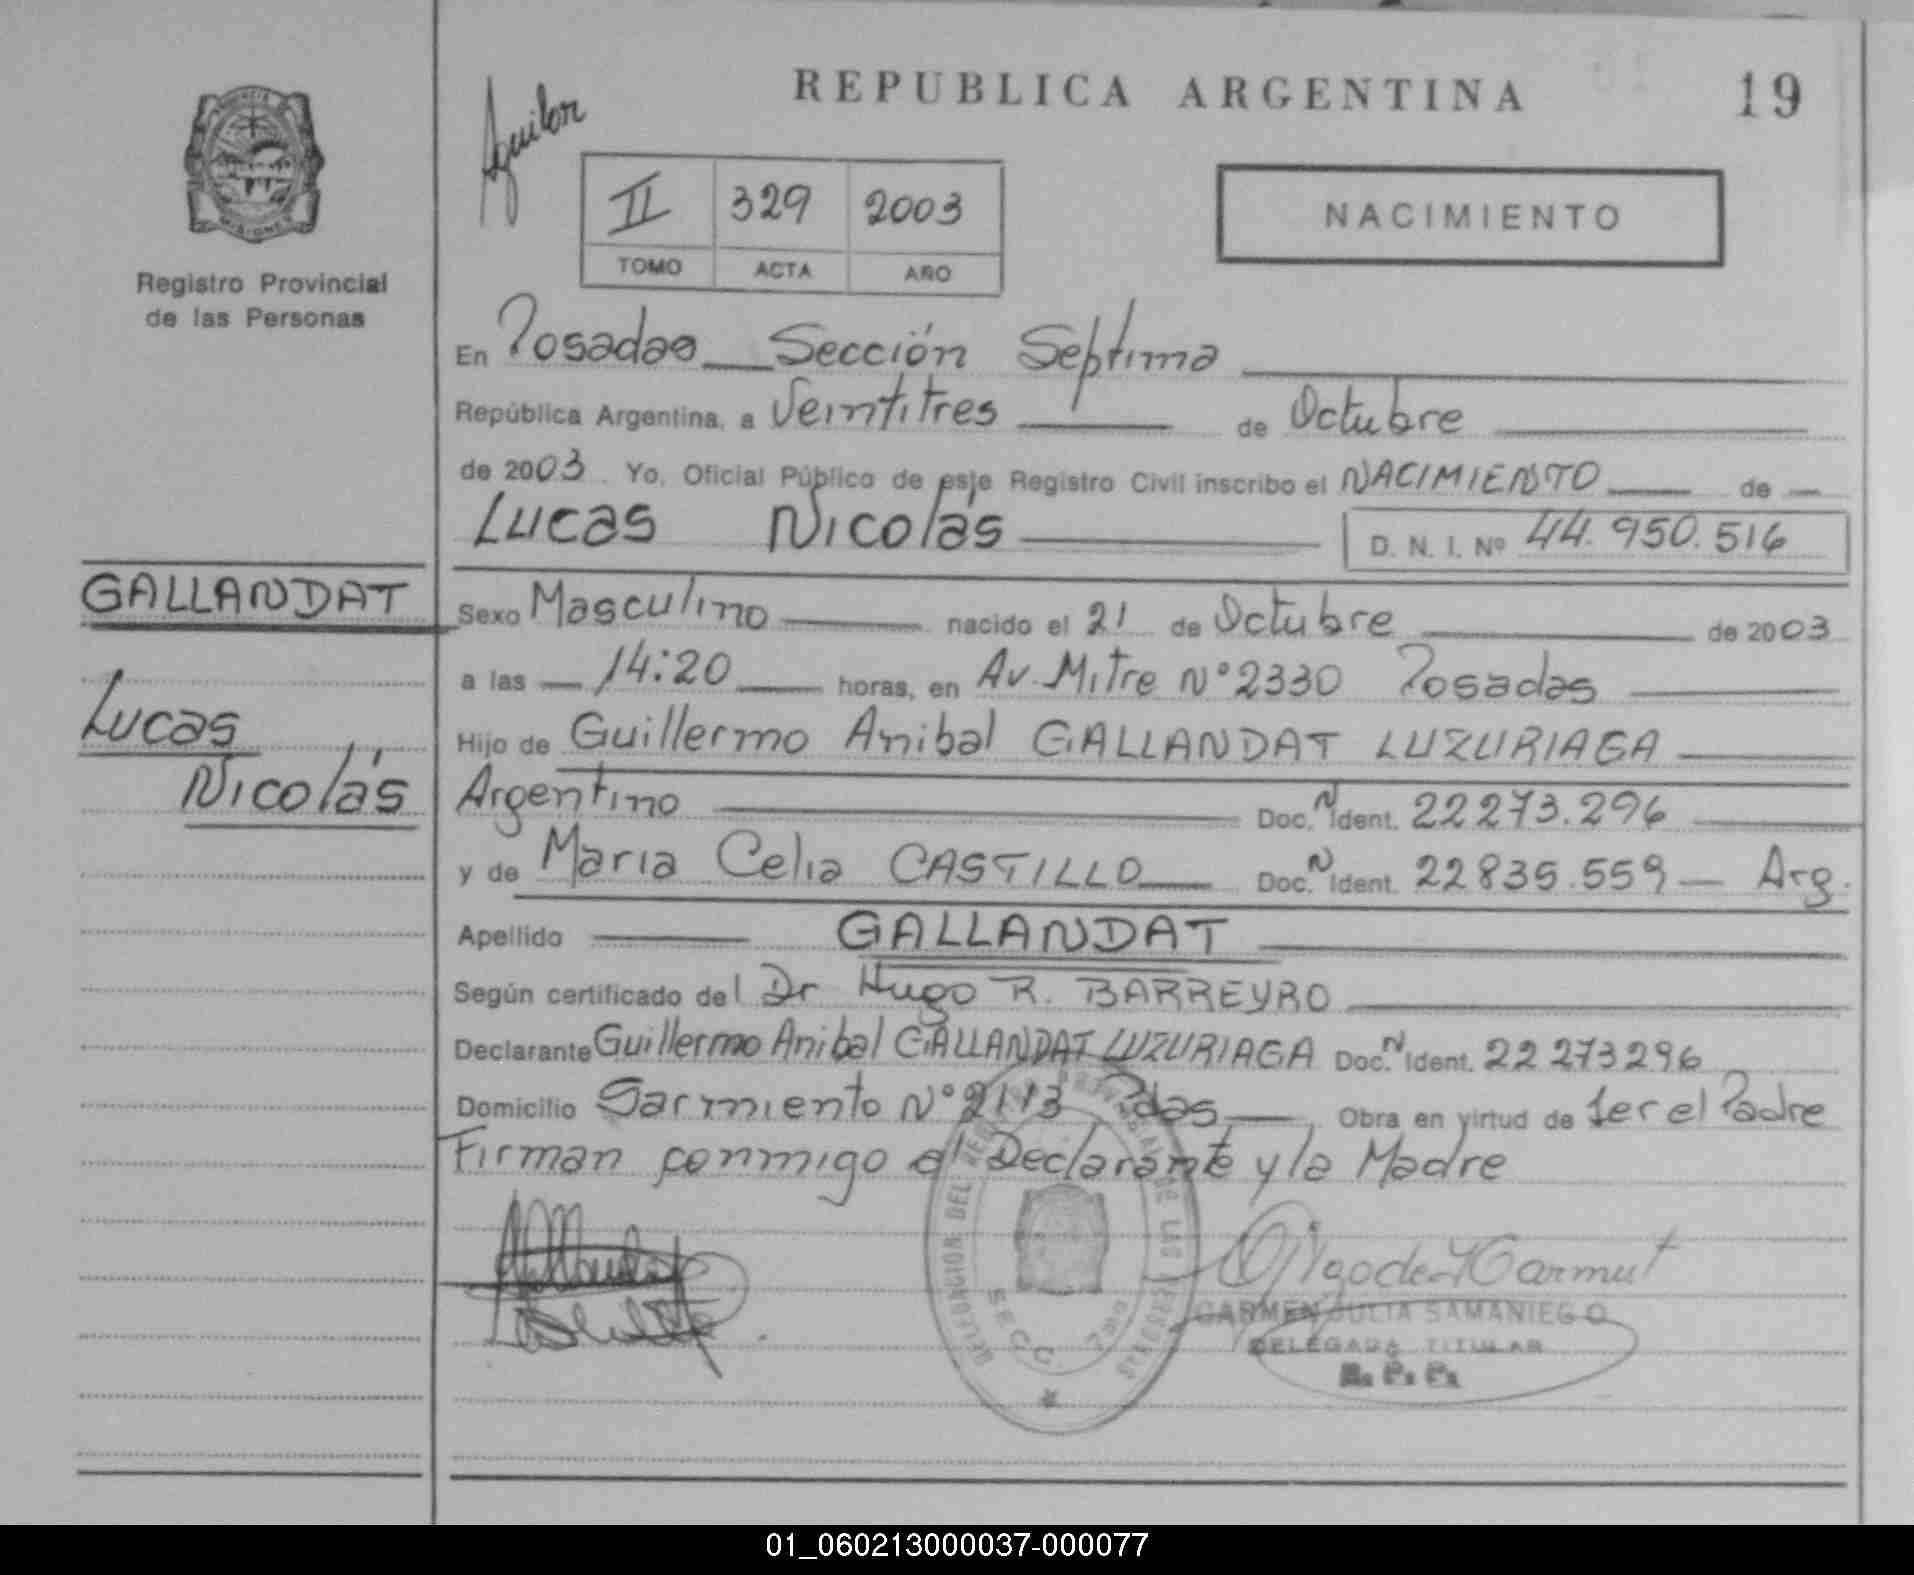 REPUBLICA ARGENTINA 19
Aguilar
II 329 2003
TOMO ACTA AÑO
NACIMIENTO
PROVINCIA DE MISIONES
Registro Provincial
de las Personas
GALLANDAT
Lucas
Nicolás
En Posadas Sección Septima
República Argentina, a Veintitres de Octubre
de 2003. Yo, Oficial Público de este Registro Civil inscribo el NACIMIENTO de
Lucas Nicolás D. N. I. Nº 44.950.516
Sexo Masculino nacido el 21 de Octubre de 2003
a las 14:20 horas, en Av. Mitre Nº 2330 Posadas
Hijo de Guillermo Anibal GALLANDAT LUZURIAGA
Argentino Doc. N Ident. 22273.296
y de Maria Celia CASTILLO Doc. N Ident. 22835.559 Arg.
Apellido GALLANDAT
Según certificado del Dr Hugo R. BARREYRO
Declarante Guillermo Anibal GALLANDAT LUZURIAGA Doc. N Ident. 22273296
Domicilio Sarmiento Nº 2113 Pdas, Obra en virtud de ser el Padre
Firman conmigo el Declarante y la Madre
DELEGACION DEL REGISTRO PROVINCIAL DE LAS PERSONAS
SECC. 7ma
CARMEN JULIA SAMANIEGO
DELEGADA TITULAR
R. P. P.
01_060213000037-000077